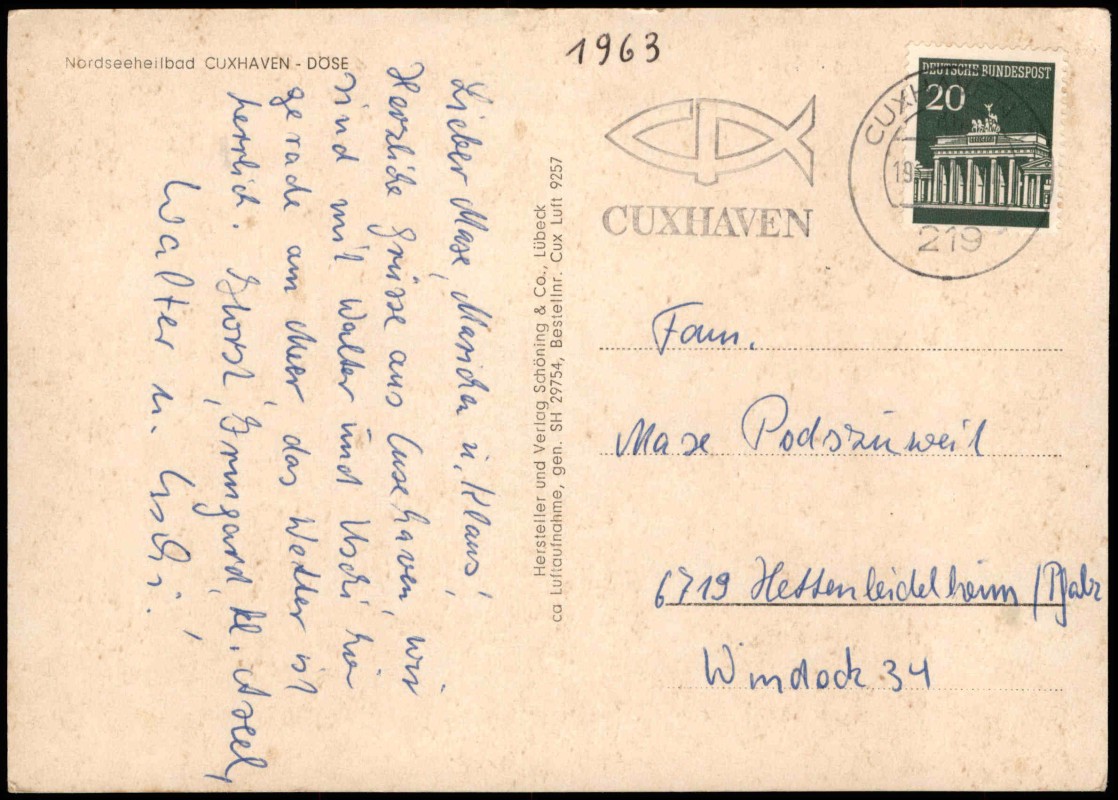 Nordseeheilbad CUXHAVEN - DÖSE
1963
CUXHAVEN
DEUTSCHE BUNDESPOST
20
CUXHAVEN
19
219
Lieber Maxe, Mariechen u. Klaus!
Herzliche Grüsse aus Cuxhaven, wir
sind mit Walter und Uschi hier
gerade am Meer das Wetter ist
herrlich. Horst, Irmgard, kl. Axel,
Walter u. Uschi.
Hersteller und Verlag Schöning & Co., Lübeck
ca Luftaufnahme, gen. SH 29754, Bestellnr. Cux Luft 9257
Fam.
Maxe Podszuweit
6719 Hettenleidelheim/Pfalz
34